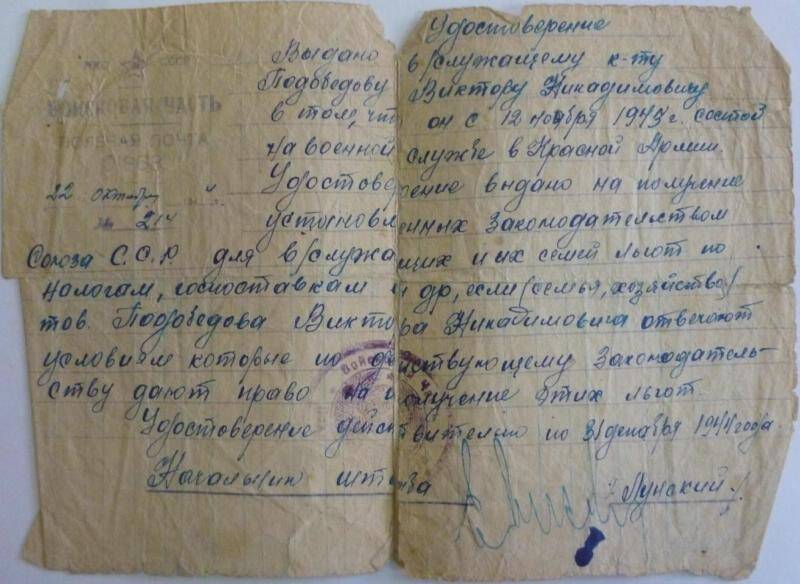 Удостоверение
Выдано в/служащему к-ту
Подобедову Виктору Никадимовичу
в том, что он с 12 ноября 1943 г. состой
на военной службе в Красной Армии.
ВОЙСКОВАЯ ЧАСТЬ
ПОЛЕВАЯ ПОЧТА
22 октября
№ 214
Удостоверение выдано на получение
установленных Законодательством
Союза С.С.Р. для в/служащих и их семей льгот по
налогам, госпоставкам и др, если (семья, хозяйство)
тов. Подобедова Виктора Никадимовича отвечают
условиям которые по действующему Законодатель-
ству дают право на получение этих льгот.
Удостоверение действительно по 31 декабря 1944 года
Начальник штаба Лунский